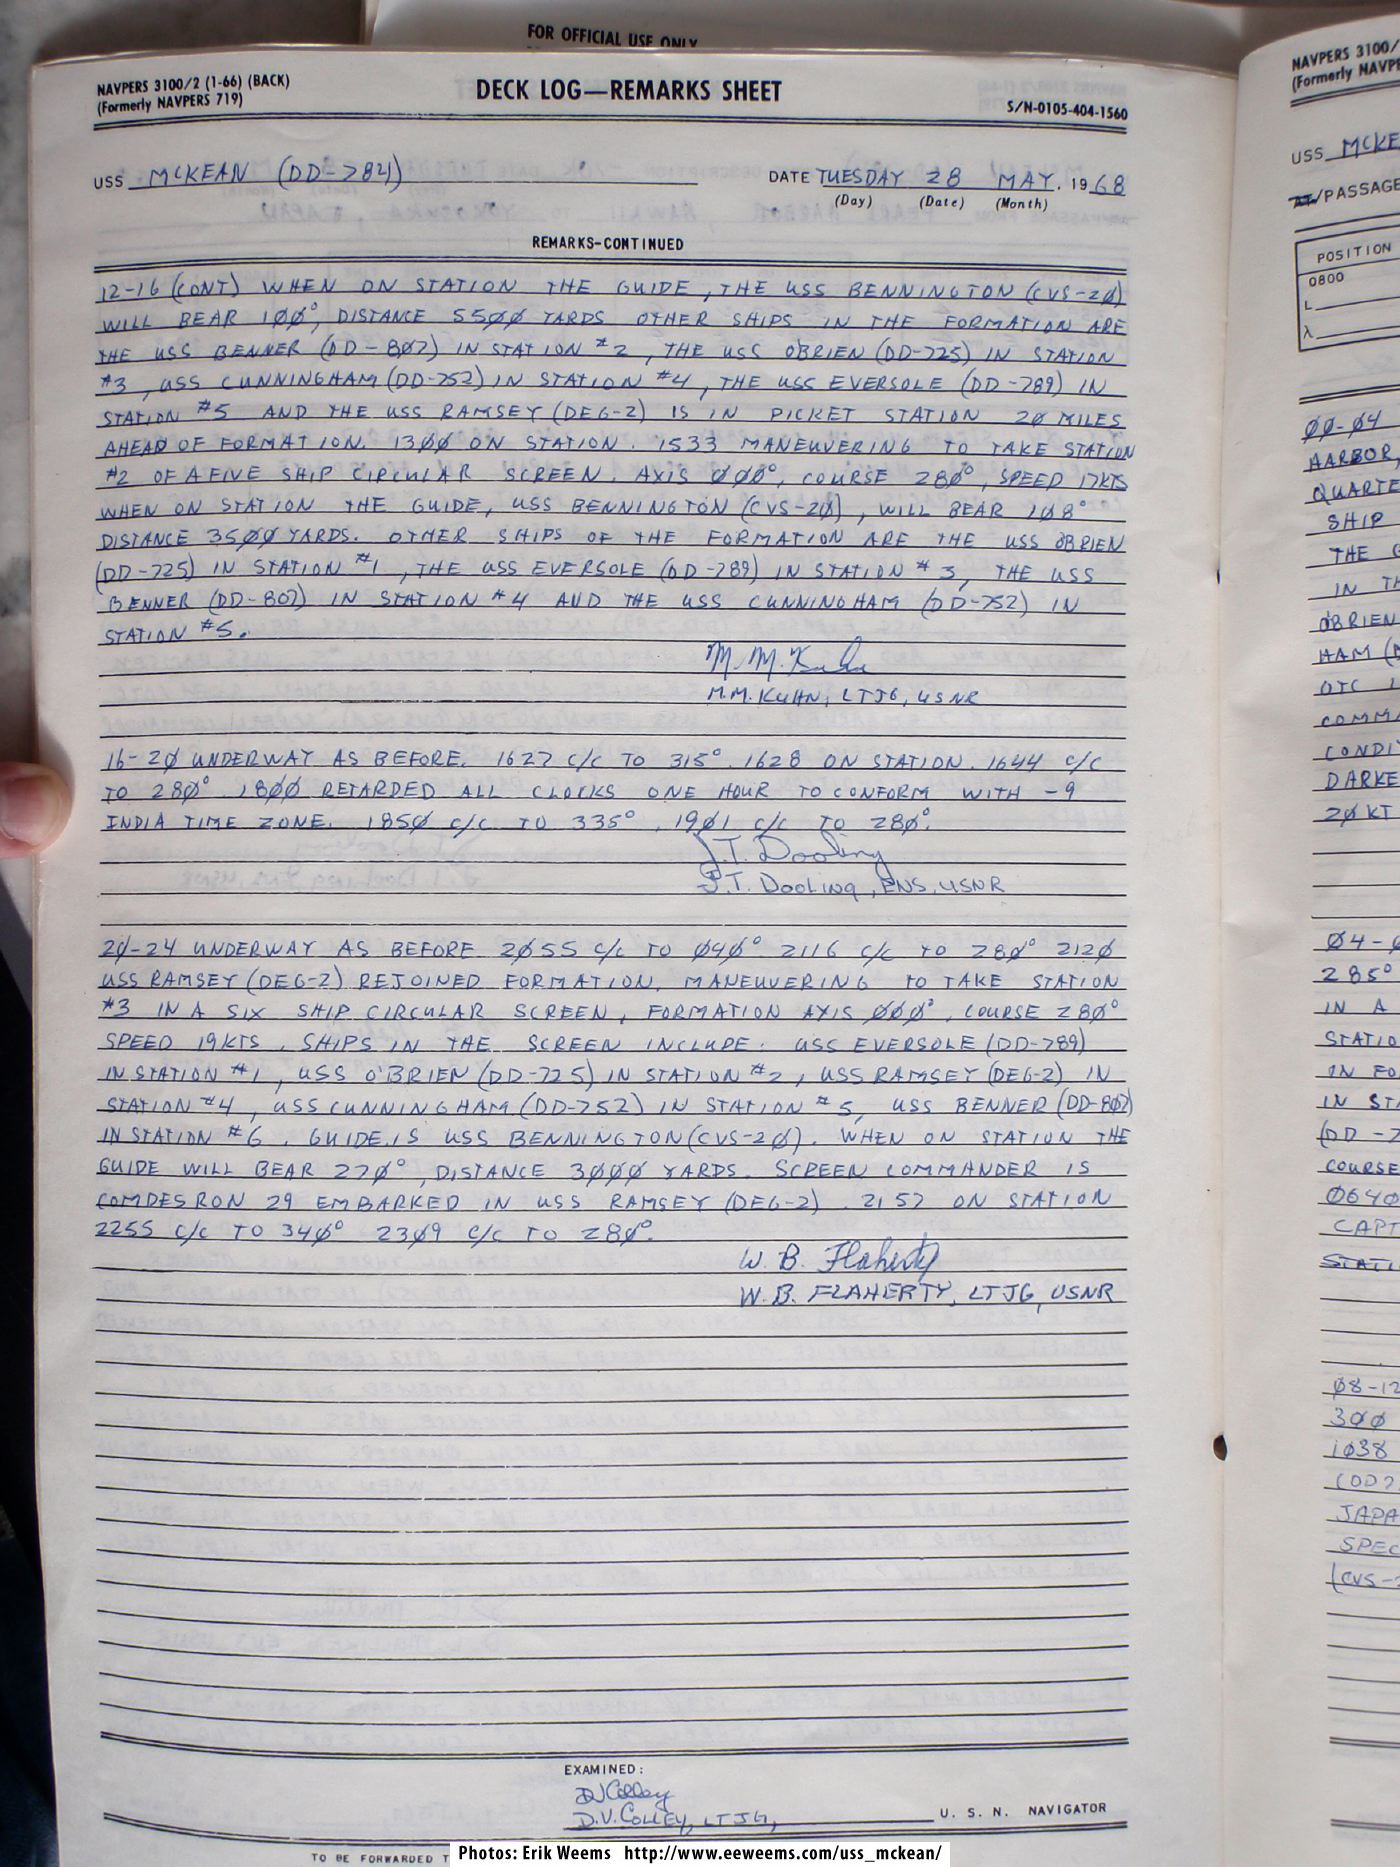 FOR OFFICIAL USE ONLY
NAVPERS 3100/2 (1-66) (BACK)
(Formerly NAVPERS 719)
DECK LOG—REMARKS SHEET
S/N-0105-404-1560
USS MCKEAN (DD-784) DATE TUESDAY 28 MAY, 1968
(Day) (Date) (Month)
REMARKS-CONTINUED
12-16 (CONT) WHEN ON STATION THE GUIDE, THE USS BENNINGTON (CVS-20)
WILL BEAR 100°, DISTANCE 5500 YARDS OTHER SHIPS IN THE FORMATION ARE
THE USS BENNER (DD-807) IN STATION #2, THE USS O'BRIEN (DD-725) IN STATION
#3, USS CUNNINGHAM (DD-752) IN STATION #4, THE USS EVERSOLE (DD-789) IN
STATION #5 AND THE USS RAMSEY (DEG-2) IS IN PICKET STATION 20 MILES
AHEAD OF FORMATION. 1300 ON STATION. 1533 MANEUVERING TO TAKE STATION
#2 OF A FIVE SHIP CIRCULAR SCREEN. AXIS 000°, COURSE 280°, SPEED 17KTS
WHEN ON STATION THE GUIDE, USS BENNINGTON (CVS-20), WILL BEAR 108°
DISTANCE 3500 YARDS. OTHER SHIPS OF THE FORMATION ARE THE USS OBRIEN
(DD-725) IN STATION #1, THE USS EVERSOLE (DD-789) IN STATION #3, THE USS
BENNER (DD-807) IN STATION #4 AND THE USS CUNNINGHAM (DD-752) IN
STATION #5.
M. M. Kuhn
M.M. KUHN, LTJG, USNR
16-20 UNDERWAY AS BEFORE. 1627 C/C TO 315°. 1628 ON STATION. 1644 C/C
TO 280°. 1800 RETARDED ALL CLOCKS ONE HOUR TO CONFORM WITH -9
INDIA TIME ZONE. 1850 C/C TO 335°, 1901 C/C TO 280°.
J.T. Dooling
J.T. Dooling, ENS, USNR
20-24 UNDERWAY AS BEFORE 2055 C/C TO 040° 2116 C/C TO 280° 2120
USS RAMSEY (DEG-2) REJOINED FORMATION. MANEUVERING TO TAKE STATION
#3 IN A SIX SHIP CIRCULAR SCREEN, FORMATION AXIS 000°, COURSE 280°
SPEED 19KTS. SHIPS IN THE SCREEN INCLUDE: USS EVERSOLE (DD-789)
IN STATION #1, USS O'BRIEN (DD-725) IN STATION #2, USS RAMSEY (DEG-2) IN
STATION #4, USS CUNNINGHAM (DD-752) IN STATION #5, USS BENNER (DD-807)
IN STATION #6. GUIDE IS USS BENNINGTON (CVS-20). WHEN ON STATION THE
GUIDE WILL BEAR 270°, DISTANCE 3000 YARDS. SCREEN COMMANDER IS
COMDESRON 29 EMBARKED IN USS RAMSEY (DEG-2). 2157 ON STATION
2255 C/C TO 340° 2309 C/C TO 280°.
W. B. Flaherty
W. B. FLAHERTY, LTJG, USNR
EXAMINED:
DV Colley
D.V. COLLEY, LTJG, U. S. N. NAVIGATOR
TO BE FORWARDED T
Photos: Erik Weems http://www.eeweems.com/uss_mckean/
NAVPERS 3100/
(Formerly NAVPE
USS MCKE
AT/PASSAGE
POSITION
0800
L
λ
00-04
HARBOR,
QUARTE
SHIP
THE G
IN TH
OBRIEN
HAM (
OTC I
COMMA
CONDI
DARKE
20 KT
04-
285°
IN A
STATIO
IN FO
IN STA
(DD-7
COURSE
0640
CAPT
STATI
08-12
300
1038
COD
JAPA
SPEC
(CVS-